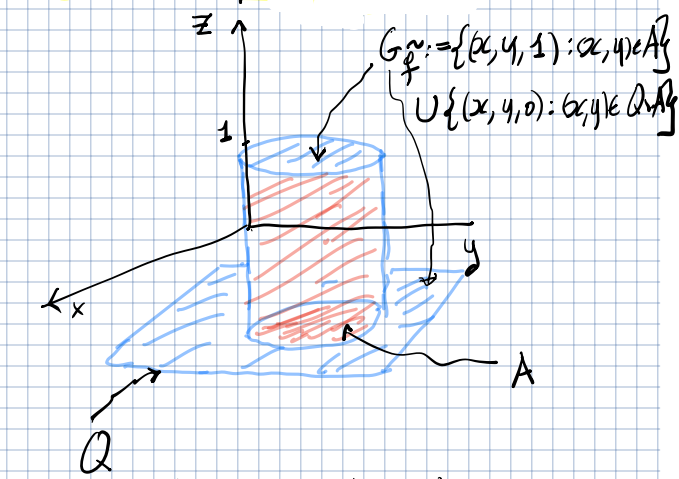 z
G_f̃ := {(x, y, 1) : (x, y) ∈ A}
∪ {(x, y, 0) : (x, y) ∈ Q \ A}
1
y
x
A
Q